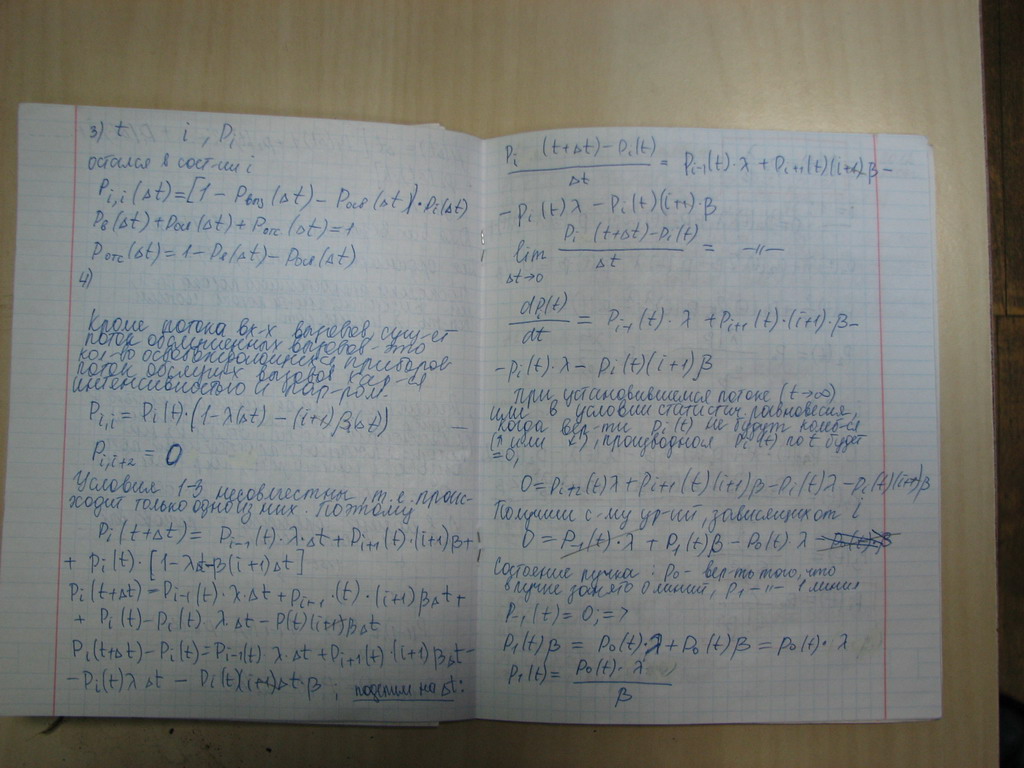 3) t i, Pi
остался в сост-ии i
Pi,i(Δt)=[1-Pвыз(Δt)-Pосв(Δt)]·Pi(Δt)
Pв(Δt)+Pосв(Δt)+Pотс(Δt)=1
Pотс(Δt)=1-Pв(Δt)-Pосв(Δt)
4)
Кроме потока вх-х вызовов сущ-ет
поток обслуженных вызовов - это
кол-во освобождающихся приборов
поток обслуж вызовов
интенсивностью и пар-ром.
Pi,i=Pi(t)·(1-λ(Δt)-(i+1)β(Δt))
Pi,i+2=0
Условия 1-3 несовместны, т.е. проис-
ходит только одно из них. Поэтому
Pi(t+Δt)=Pi-1(t)·λ·Δt+Pi+1(t)·(i+1)β+
+Pi(t)·[1-λΔt-β(i+1)Δt]
Pi(t+Δt)=Pi-1(t)·λ·Δt+Pi+1·(t)·(i+1)βΔt+
+Pi(t)-Pi(t) λΔt-P(t)(i+1)βΔt
Pi(t+Δt)-Pi(t)=Pi-1(t)·λ·Δt+Pi+1(t)·(i+1)βΔt-
-Pi(t)λΔt-Pi(t)(i+1)Δt·β; поделим на Δt:
Pi (t+Δt)-Pi(t) / Δt = Pi-1(t)·λ+Pi+1(t)(i+1)β-
-Pi(t)λ-Pi(t)(i+1)·β
lim Δt→0 Pi (t+Δt)-Pi(t) / Δt = -"-
dPi(t) / dt = Pi-1(t)·λ+Pi+1(t)·(i+1)·β-
-Pi(t)·λ-Pi(t)(i+1)β
При установившемся потоке (t→∞)
или в условии статистич. равновесия,
когда вер-ти Pi(t) не будут колеб-ся
(↑ или ↓), производной Pi(t) по t будет
=0,
0=Pi+2(t)λ+Pi+1(t)(i+1)β-Pi(t)λ-Pi(t)(i+1)β
Получим с-му ур-ий, зависящих от i
0=P-1(t)·λ+P1(t)β-P0(t)λ
Состояние пучка: P0- вер-ть того, что
в пучке занято 0 линий, P1 -"- 1 линия
P-1(t)=0;=>
P1(t)β=P0(t)·λ+P0(t)β=P0(t)·λ
P1(t)= P0(t)·λ / β